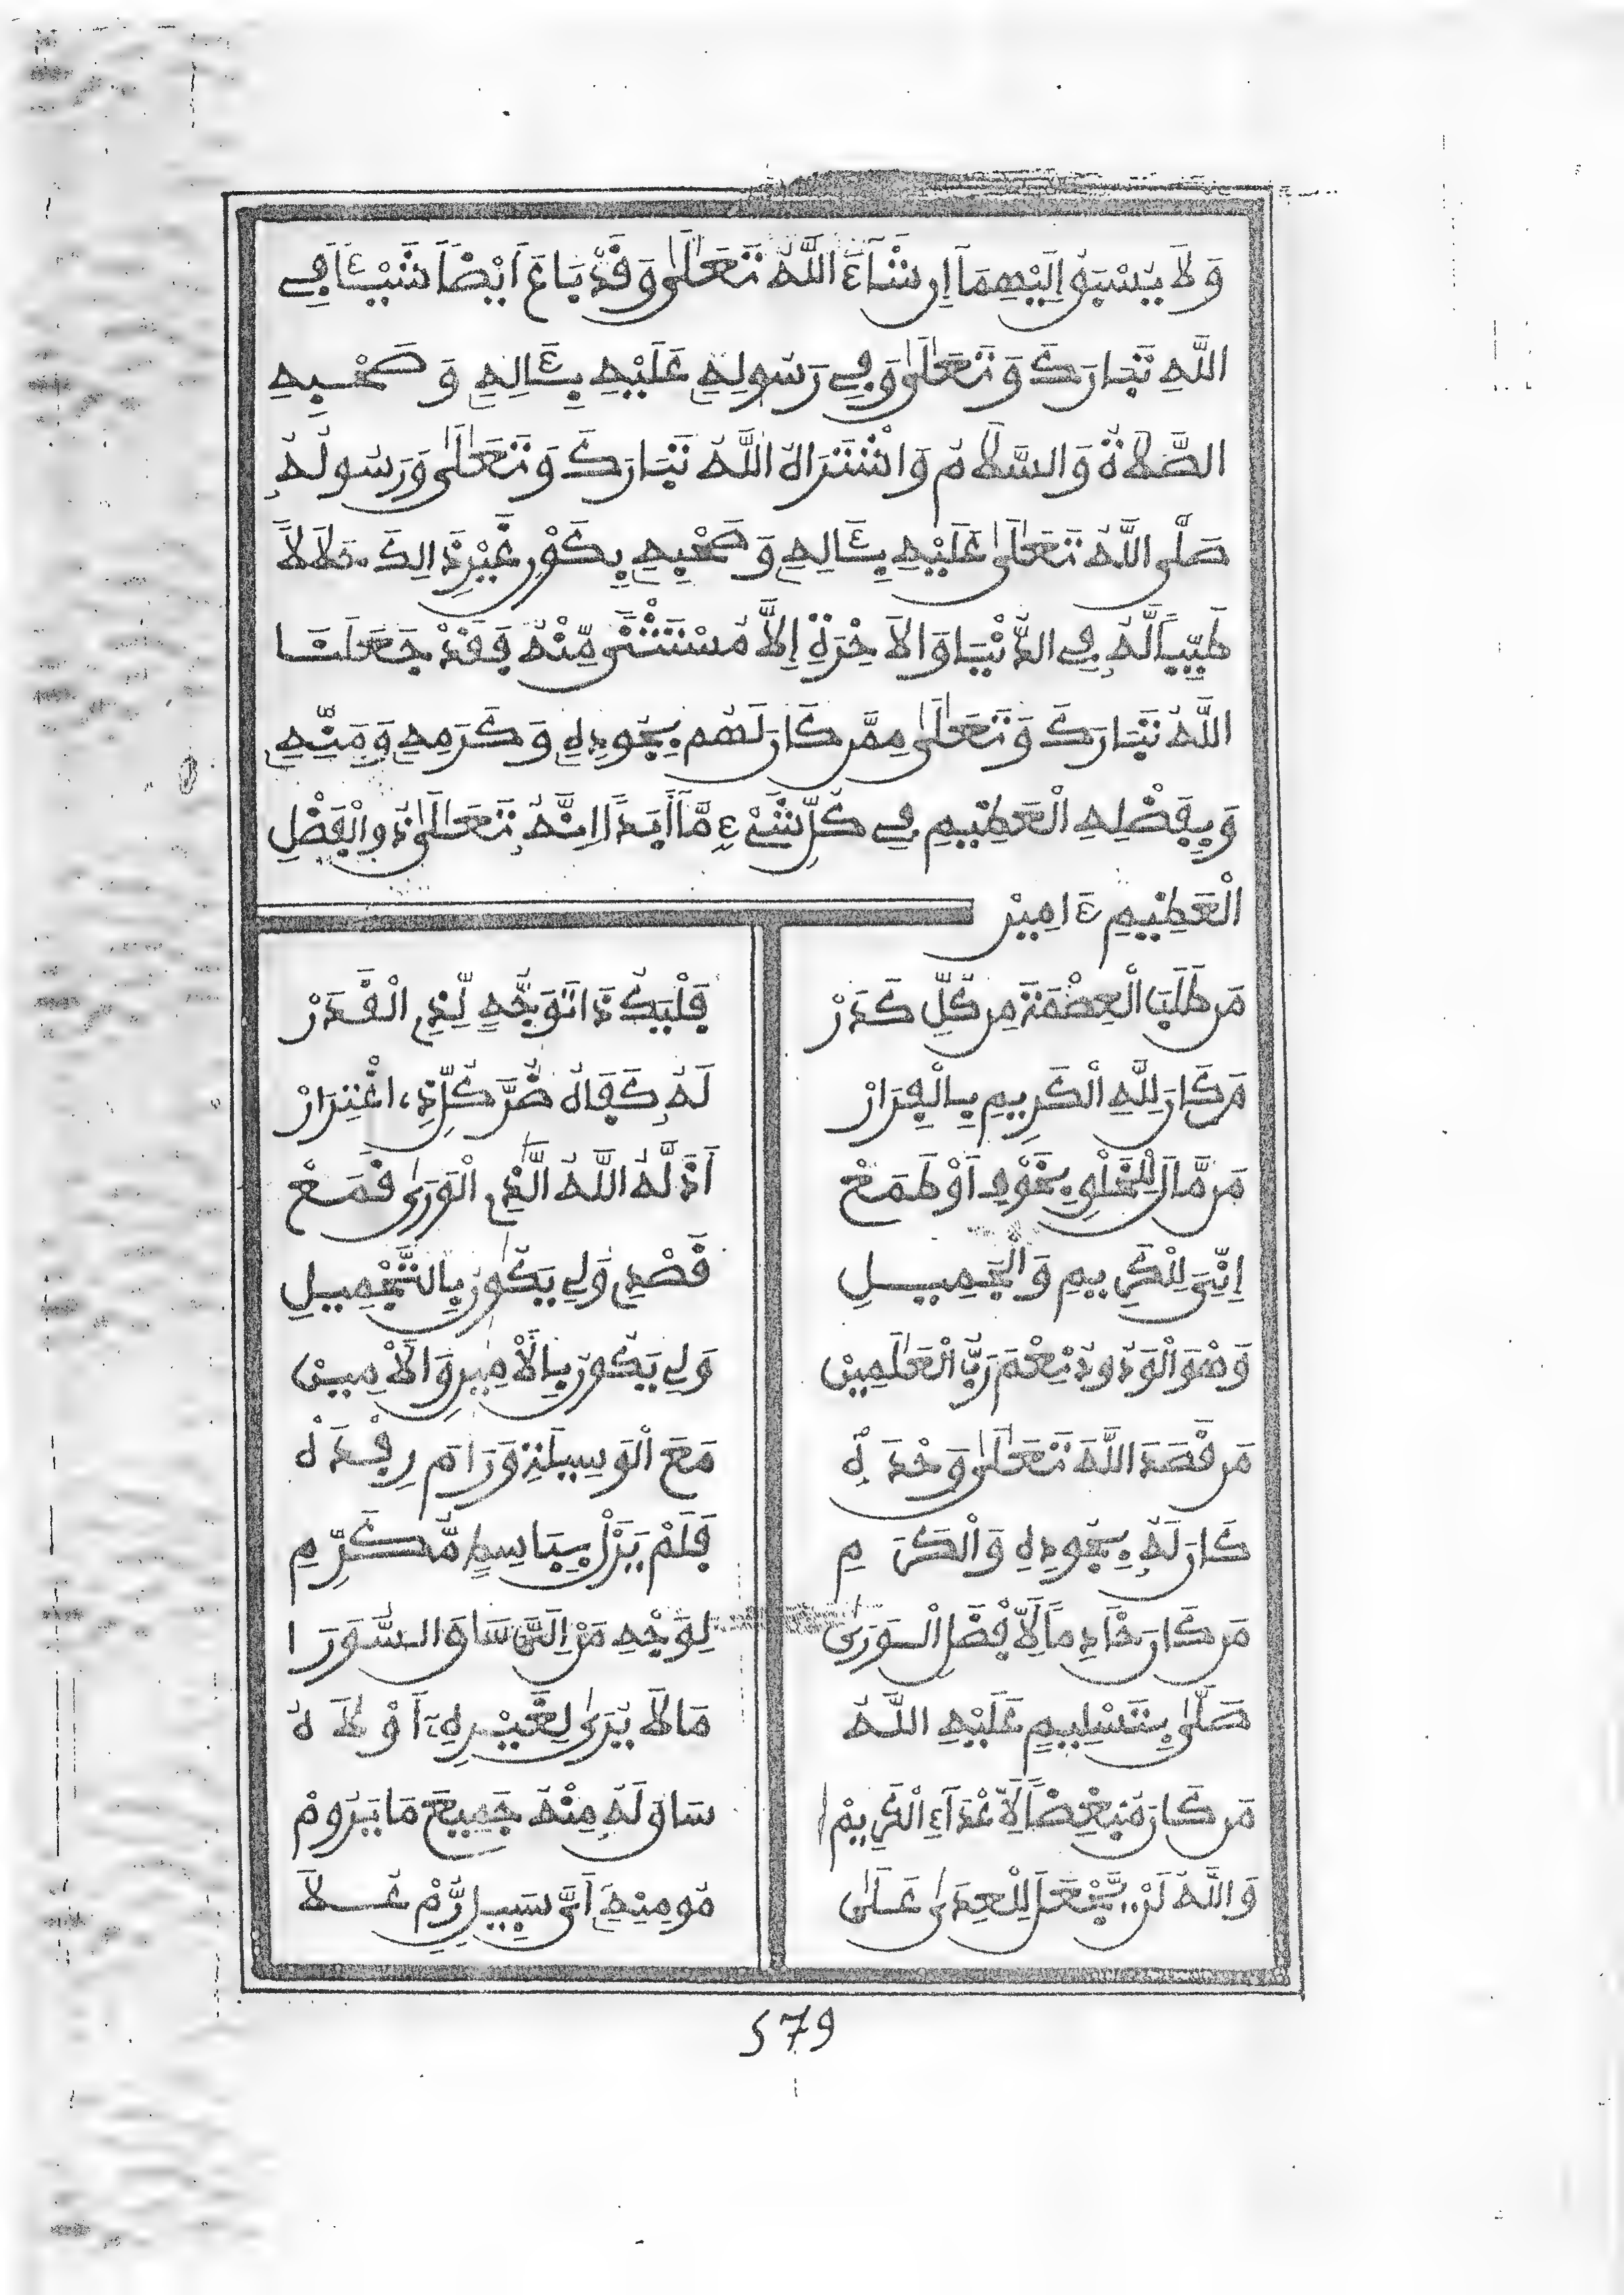 وَلَا يُسْبَقُ إِلَيْهِمَا إِن شَاءَ اللَّهُ تَعَالَىٰ وَقَدْ بَاعَ أَيْضًا شَيْئًا فِي
اللَّهِ تَبَارَكَ وَتَعَالَىٰ وَفِي رَسُولِهِ عَلَيْهِ بِئَالِهِ وَصَحْبِهِ
الصَّلَاةُ وَالسَّلَامُ وَاشْتَرَاهُ اللَّهُ تَبَارَكَ وَتَعَالَىٰ وَرَسُولُهُ
صَلَّى اللَّهُ تَعَالَىٰ عَلَيْهِ بِئَالِهِ وَصَحْبِهِ بِكَوْنِ غَيْرِ ذَالِكَ حَلَالًا
طَيِّبًا لَّهُ فِي الدُّنْيَا وَالْآخِرَةِ إِلَّا مُسْتَثْنًى مِّنْهُ فَقَدْ جَعَلَنَا
اللَّهُ تَبَارَكَ وَتَعَالَىٰ مِمَّن كَانَ لَهُم بِجُودِهِ وَكَرَمِهِ وَمَنِّهِ
وَبِفَضْلِهِ الْعَظِيمِ فِي كُلِّ شَيْءٍ مَّا أَبَدًا إِنَّهُ تَعَالَىٰ ذُو الْفَضْلِ
الْعَظِيمِ ءَامِينْ
مَن طَلَبَ الْعِصْمَةَ مِن كُلِّ كَدَرْ فَلْيَكُ ذَا تَوَجُّهٍ لِّذِي الْقَدَرْ
مَن كَانَ لِلَّهِ الْكَرِيمِ بِالْفِرَارْ لَهُ كَفَاهُ ضُرَّ كُلِّ ذِي اغْتِرَارْ
مَن مَّالَ لِلْخَلْقِ بِخَوْفٍ أَوْ طَمَعْ أَذَلَّهُ اللَّهُ الَّذِي الْوَرَىٰ قَمَعْ
إِنِّيَ لِلْكَرِيمِ وَالْجَمِيلِ قَصْدِي وَلِي يَكُونُ بِالتَّجْمِيلِ
وَهْوَ الْوَدُودُ نِعْمَ رَبُّ الْعَالَمِينْ وَلِي يَكُونُ بِالْأَمِينِ وَالْأَمِينْ
مَن قَصَدَ اللَّهَ تَعَالَىٰ وَحْدَهُ مَعَ الْوَسِيلَةِ وَرَامَ رِفْدَهُ
كَانَ لَهُ بِجُودِهِ وَالْكَرَمِ فَلَمْ يَزَلْ بِبَاسِمٍ مُّكَرَّمِ
مَن كَانَ خَادِمًا لِأَفْضَلِ الْوَرَىٰ لِوَجْهِ مَنْ إِلَيَّ سَاقَ السُّوَرَا
صَلَّىٰ بِتَسْلِيمٍ عَلَيْهِ اللَّهُ مَا لَا يُرَىٰ لِغَيْرِهِ أَوْلَاهُ
مَن كَانَ مُبْغِضًا لِأَعْدَاءِ الْكَرِيمْ سَاقَ لَهُ مِنْهُ جَمِيعَ مَا يَرُومْ
وَاللَّهُ لَنْ يَجْعَلَ لِلْعِدَىٰ عَلَىٰ مُومِنِهِ أَيَّ سَبِيلٍ رُّمْ عَلَا
579